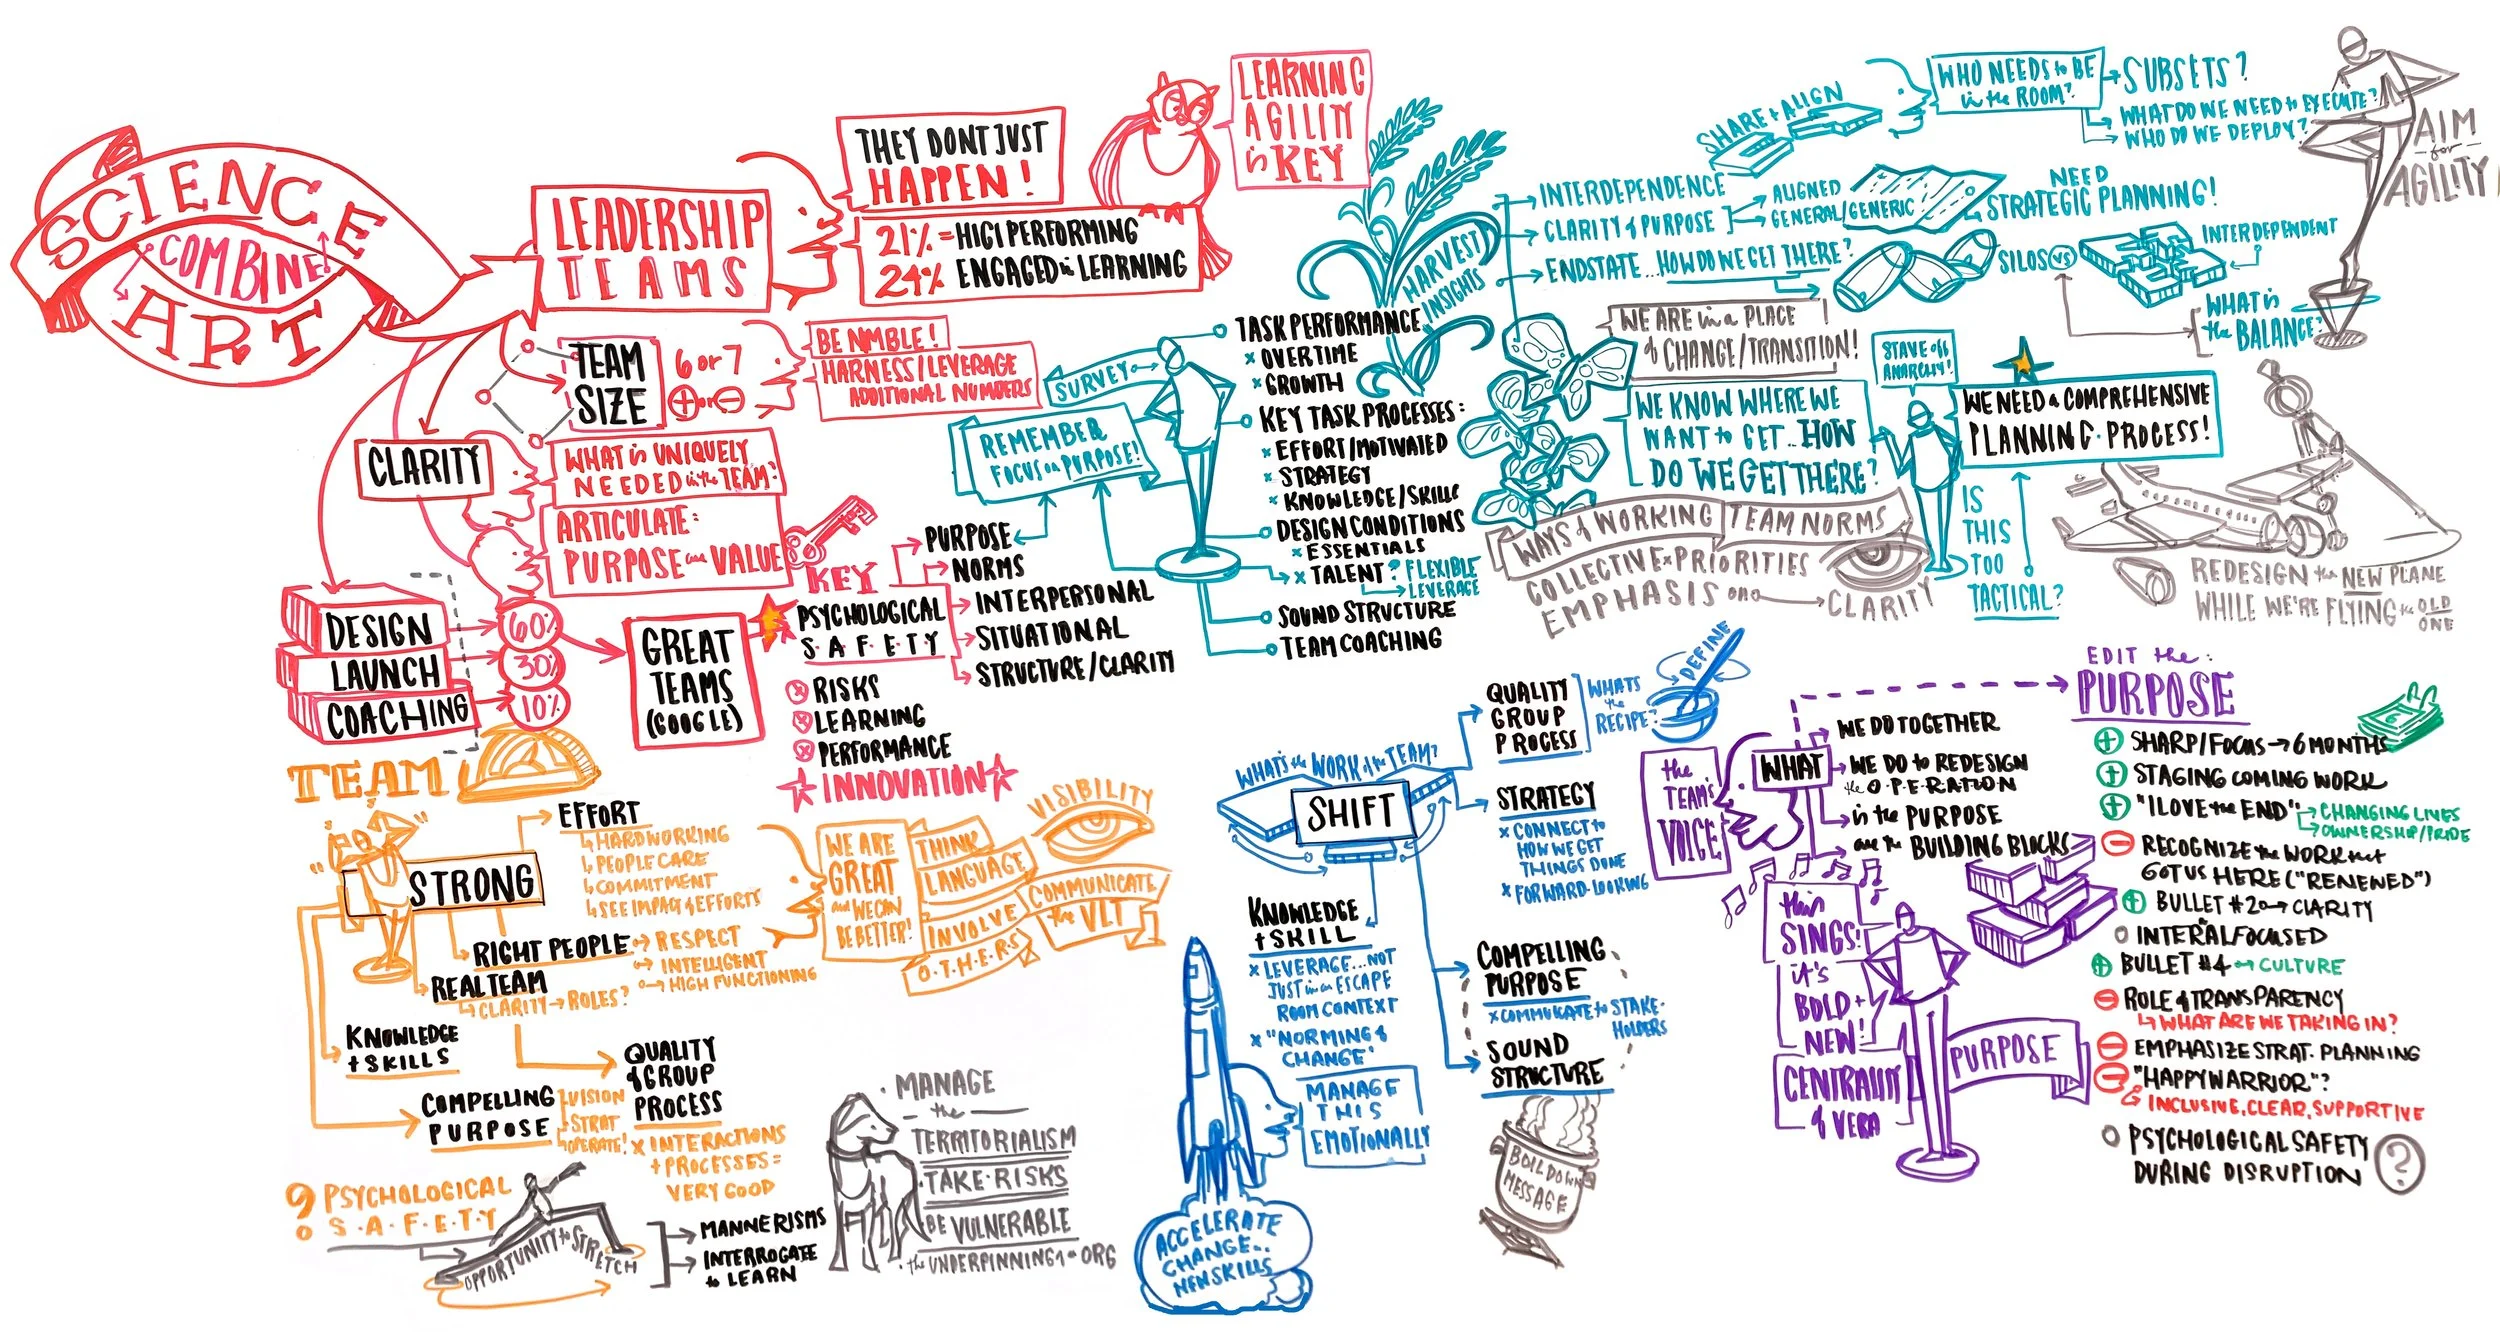 SCIENCE
COMBINE
ART
LEADERSHIP
TEAMS
THEY DONT JUST
HAPPEN!
21% = HIGH PERFORMING
24% ENGAGED in LEARNING
LEARNING
AGILITY
is KEY
TEAM
SIZE
6 or 7
+ or -
BE NIMBLE!
HARNESS/LEVERAGE
ADDITIONAL NUMBERS
CLARITY
WHAT is UNIQUELY
NEEDED in the TEAM?
ARTICULATE:
PURPOSE and VALUE
KEY
DESIGN
LAUNCH
COACHING
60%
30%
10%
GREAT
TEAMS
(GOOGLE)
PSYCHOLOGICAL
S·A·F·E·T·Y
PURPOSE
NORMS
INTERPERSONAL
SITUATIONAL
STRUCTURE/CLARITY
RISKS
LEARNING
PERFORMANCE
INNOVATION
SURVEY
REMEMBER
FOCUS on PURPOSE!
TASK PERFORMANCE
x OVERTIME
x GROWTH
KEY TASK PROCESSES:
x EFFORT/MOTIVATED
x STRATEGY
x KNOWLEDGE/SKILLS
DESIGN CONDITIONS
x ESSENTIALS
x TALENT? FLEXIBLE
LEVERAGE
SOUND STRUCTURE
TEAM COACHING
HARVEST
INSIGHTS
SHARE + ALIGN
WHO NEEDS to BE
in the ROOM?
SUBSETS?
WHAT DO WE NEED to EXECUTE?
WHO DO WE DEPLOY?
AIM
for
AGILITY!
INTERDEPENDENCE
CLARITY of PURPOSE
ALIGNED
GENERAL/GENERIC
NEED
STRATEGIC PLANNING!
ENDSTATE...HOW DO WE GET THERE?
SILOS VS
INTERDEPENDENT
WHAT is
the BALANCE?
WE ARE in a PLACE
of CHANGE/TRANSITION!
WE KNOW WHERE WE
WANT to GET...HOW
DO WE GET THERE?
STAVE off
ANARCHY!
WE NEED a COMPREHENSIVE
PLANNING PROCESS!
IS
THIS
TOO
TACTICAL?
WAYS of WORKING
TEAM NORMS
COLLECTIVE x PRIORITIES
EMPHASIS on
CLARITY
REDESIGN the NEW PLANE
WHILE WE'RE FLYING the OLD
ONE
TEAM
STRONG
EFFORT
HARDWORKING
PEOPLE CARE
COMMITMENT
SEE IMPACT of EFFORTS
RIGHT PEOPLE
RESPECT
INTELLIGENT
HIGH FUNCTIONING
REAL TEAM
CLARITY → ROLES?
KNOWLEDGE
+ SKILLS
COMPELLING
PURPOSE
VISION
STRAT
OPERATE!
QUALITY
of GROUP
PROCESS
x INTERACTIONS
+ PROCESSES =
VERY GOOD
WE ARE
GREAT
and WE CAN
BE BETTER!
THINK
LANGUAGE
INVOLVE
O·T·H·E·R·S
VISIBILITY
COMMUNICATE
the VLT
? PSYCHOLOGICAL
S·A·F·E·T·Y
OPPORTUNITY to STRETCH
MANNERISMS
INTERROGATE
to LEARN
MANAGE
the
TERRITORIALISM
TAKE·RISKS
BE VULNERABLE
the UNDERPINNING of the ORG
WHAT'S the WORK of the TEAM?
SHIFT
QUALITY
GROUP
PROCESS
WHATS
the
RECIPE?
DEFINE
STRATEGY
x CONNECT to
HOW WE GET
THINGS DONE
x FORWARD-LOOKING
KNOWLEDGE
+ SKILL
x LEVERAGE...NOT
JUST in an ESCAPE
ROOM CONTEXT
x "NORMING of
CHANGE"
MANAGE
THIS
EMOTIONALLY
COMPELLING
PURPOSE
x COMMUKATE to STAKE-
HOLDERS
SOUND
STRUCTURE
BOIL DOWN
MESSAGE
ACCELERATE
CHANGE..
NEW SKILLS
the
TEAM'S
VOICE
WHAT
WE DO TOGETHER
WE DO to REDESIGN
the O·P·E·R·A·T·I·O·N
in the PURPOSE
are the BUILDING BLOCKS
this
SINGS!
it's
BOLD +
NEW!
CENTRALITY
of VERA
PURPOSE
EDIT the:
PURPOSE
+ SHARP/FOCUS → 6 MONTHS
+ STAGING COMING WORK
+ "I LOVE the END"
CHANGING LIVES
OWNERSHIP/PRIDE
- RECOGNIZE the WORK that
GOT US HERE ("RENEWED")
+ BULLET #2 → CLARITY
INTERAL FOCUSED
+ BULLET #4 → CULTURE
- ROLE of TRANSPARENCY
WHAT ARE WE TAKING IN?
- EMPHASIZE STRAT. PLANNING
- "HAPPY WARRIOR"?
INCLUSIVE, CLEAR, SUPPORTIVE
PSYCHOLOGICAL SAFETY
DURING DISRUPTION ?